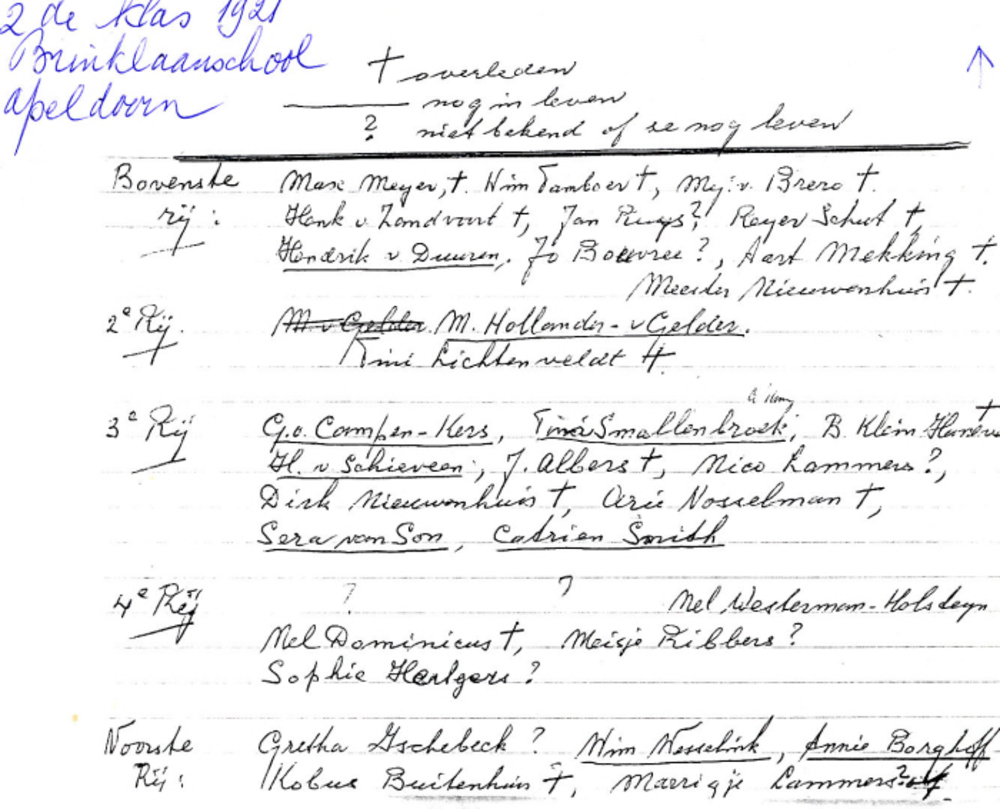 2 de klas 1921
Brinklaanschool
apeldoorn
† overleden
——— nog in leven
? niet bekend of ze nog leven
Bovenste rij: Max Meyer, †. Wim Tamboer †, Mej. v. Brero †.
Henk v Zandvoort †, Jan Ruys? Reyer Schut †,
Hendrik v Duuren, Jo Bouvree?, Aart Mekking †.
Meester Nieuwenhuis †.
2e Rij. M v Gelder. M. Hollander - v Gelder.
Tini Lichtenveldt †
3e Rij G.v. Campen - Kers, Tina Smallenbroek, B. Klein †
H. v Schieveen, J. Albers †, Nico Lammers?,
Dirk Nieuwenhuis †, Arie Nosselman †,
Sera van Son, Catrien Smith
4e Rij ? ? Nel Westerman - Holsteyn
Nel Dominicus †, Meisje Ribbers?
Sophie Hertgers?
Voorste Rij: Gretha Gschebeck? Wim Wesselink, Annie Borghoff
Kobus Buitenhuis †, Marrigje Lammers?